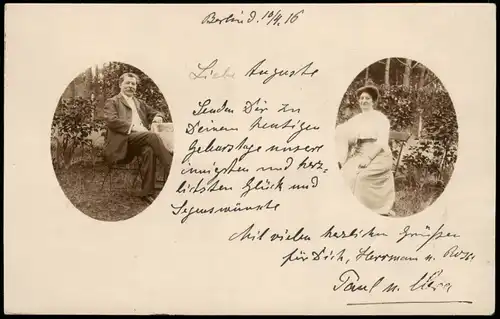 Berlin d. 10/9. 16
Liebe Auguste
Senden Dir zu
Deinem heutigen
Geburtstage unsere
innigsten und herz-
lichsten Glück und
Segenswünsche
Mit vielen herzlichen Grüßen
für Dich, Herrman u.
Paul u.